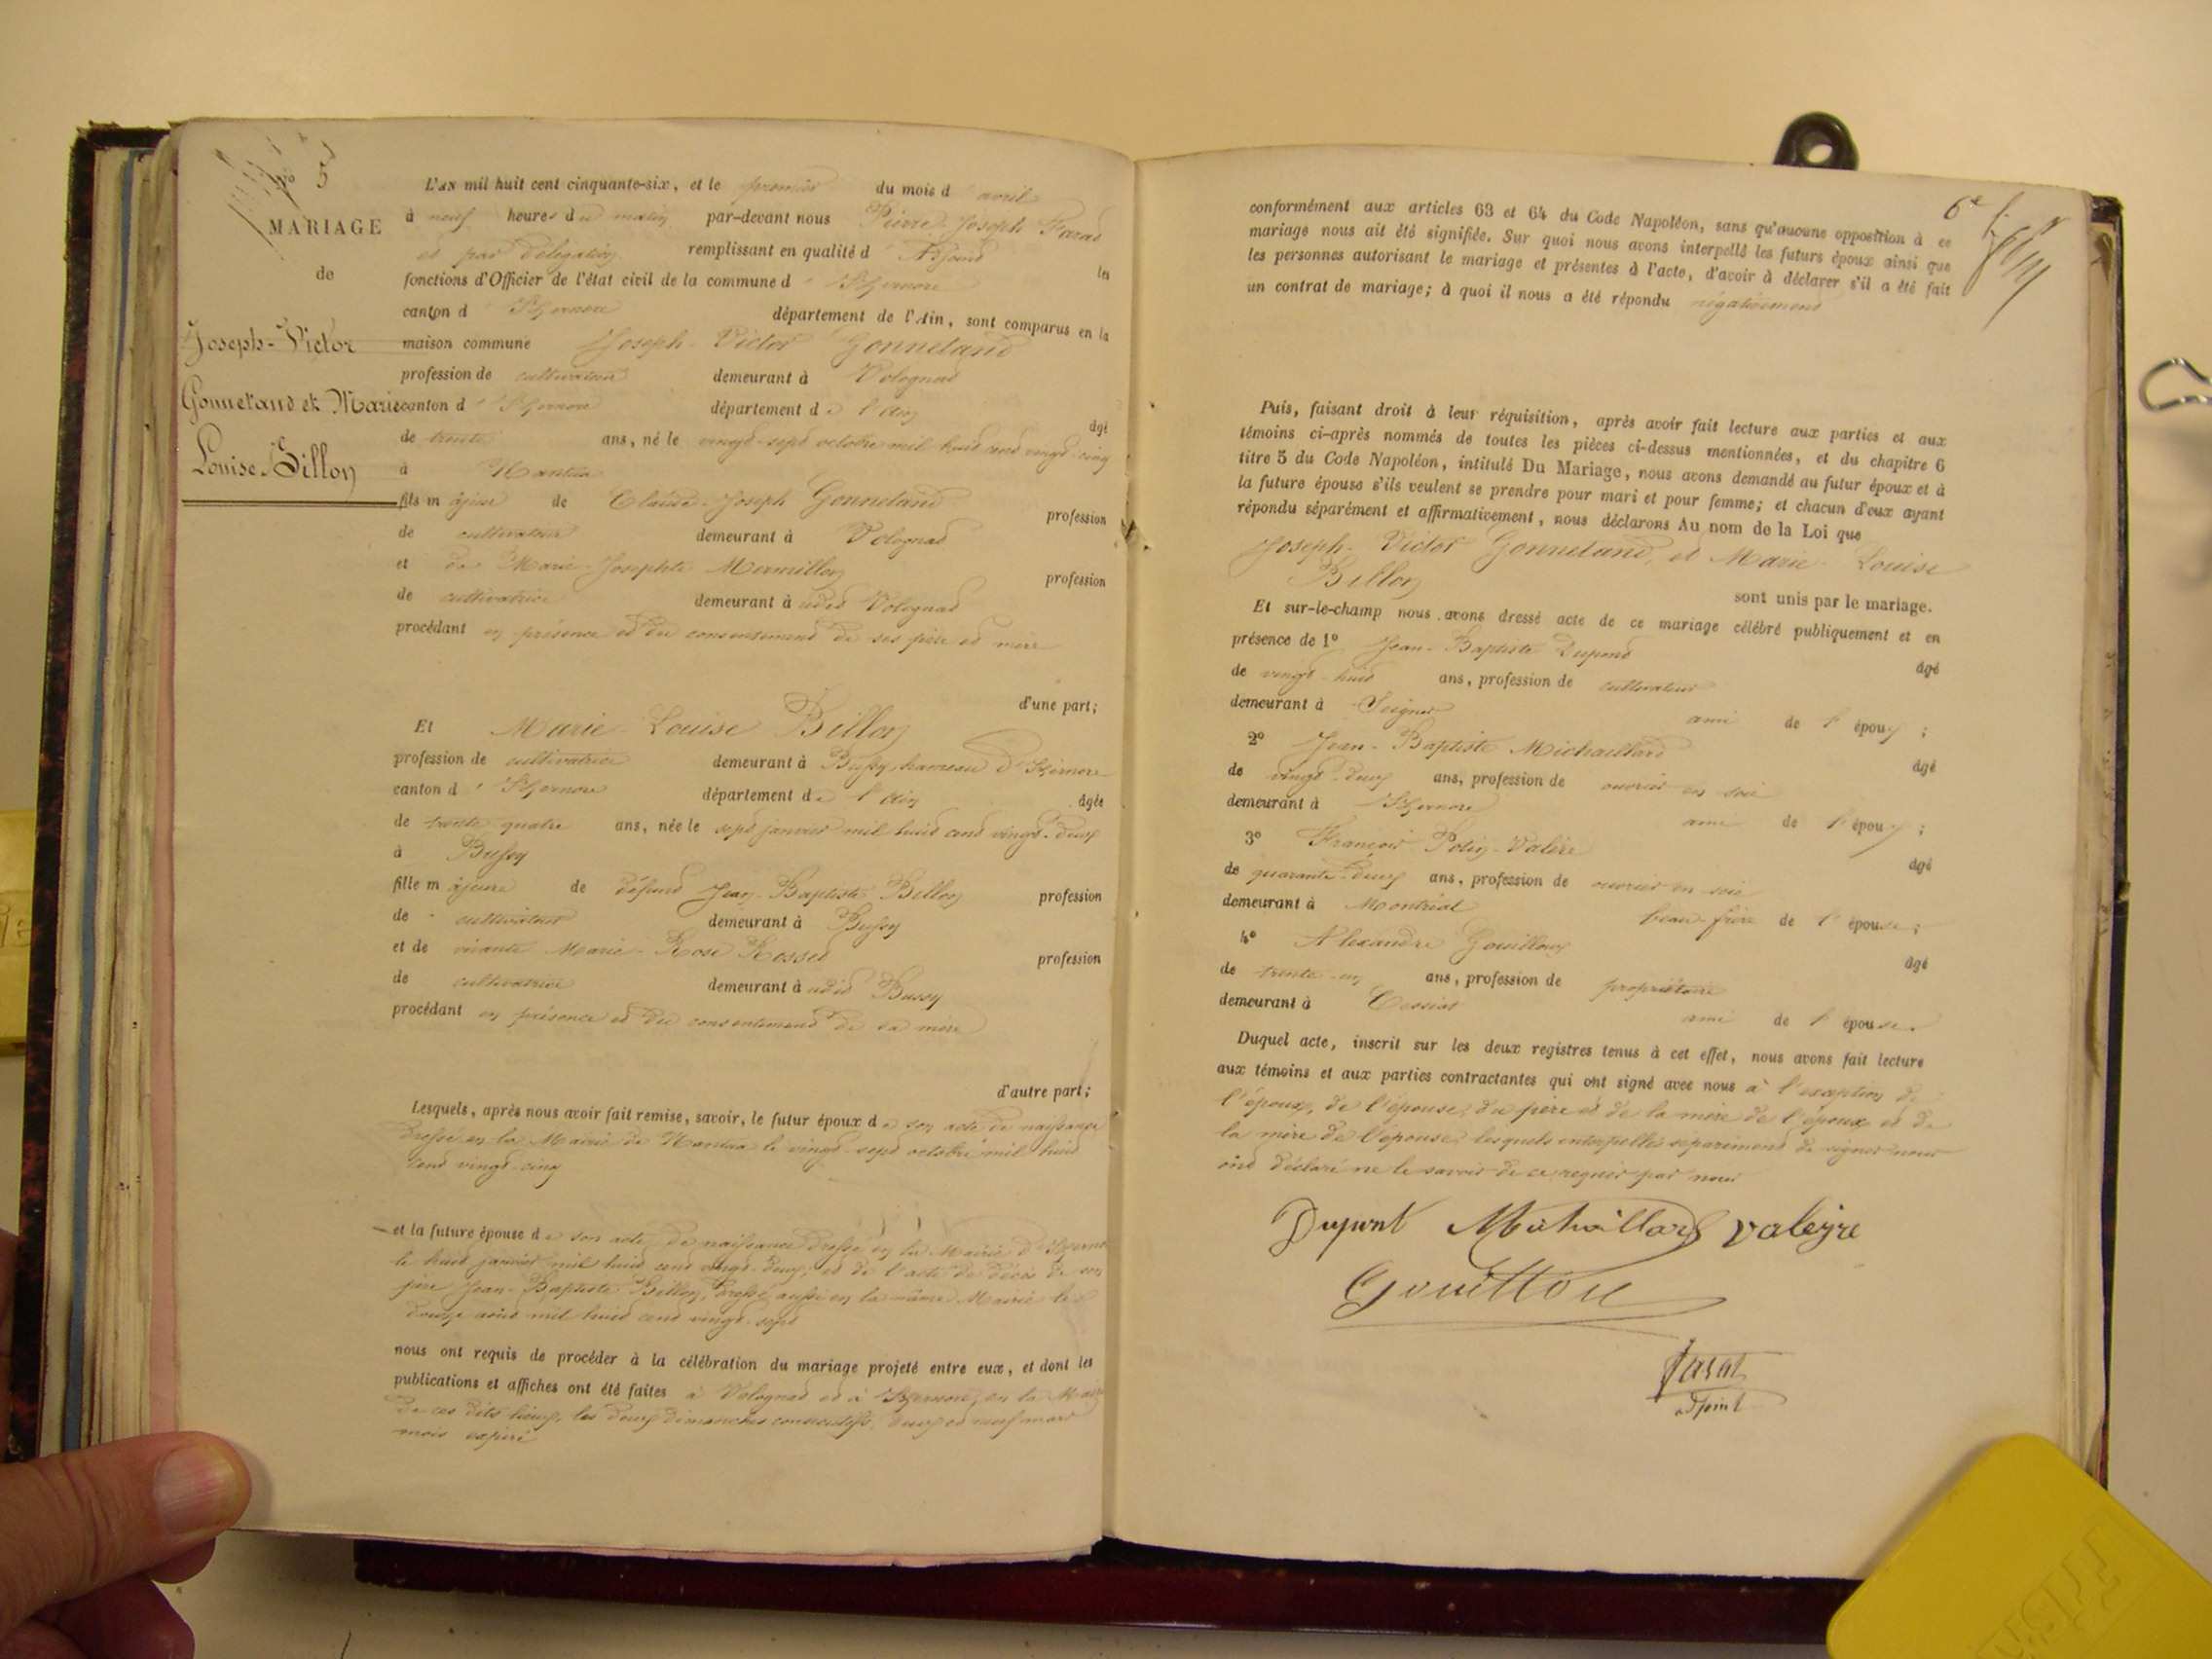 N° 5
MARIAGE
de
Joseph-Victor
Gonneland et Marie
Louise Billon
L'AN mil huit cent cinquante-six, et le premier du mois d'avril
à neuf heures du matin par-devant nous Pierre-Joseph Farat
et par délégation remplissant en qualité d'Adjoint les
fonctions d'Officier de l'état civil de la commune d'Izernore
canton d'Izernore département de l'Ain, sont comparus en la
maison commune Joseph-Victor Gonneland
profession de cultivateur demeurant à Volognat
canton d'Izernore département de l'Ain âgé
de trente ans, né le vingt-sept octobre mil huit cent vingt-cinq
à Nantua
fils majeur de Claude-Joseph Gonneland profession
de cultivateur demeurant à Volognat
et de Marie-Josephte Mermillon profession
de cultivatrice demeurant à udit Volognat
procédant en présence et du consentement de ses père et mère
d'une part;
Et Marie Louise Billon
profession de cultivatrice demeurant à Bussy, hameau d'Izernore
canton d'Izernore département de l'Ain âgée
de trente quatre ans, née le sept janvier mil huit cent vingt-deux
à Bussy
fille majeure de défunt Jean-Baptiste Billon profession
de cultivateur demeurant à Bussy
et de vivante Marie-Rose Rosset profession
de cultivatrice demeurant à udit Bussy
procédant en présence et du consentement de sa mère
d'autre part;
Lesquels, après nous avoir fait remise, savoir, le futur époux de son acte de naissance
dressé en la Mairie de Nantua le vingt-sept octobre mil huit
cent vingt-cinq
et la future épouse de son acte de naissance dressé en la Mairie d'Izernore
le huit janvier mil huit cent vingt-deux, et de l'acte de décès de son
père Jean-Baptiste Billon, dressé aussi en la même Mairie le
douze août mil huit cent vingt-sept
nous ont requis de procéder à la célébration du mariage projeté entre eux, et dont les
publications et affiches ont été faites à Volognat et à Izernore, en la Mairie
de ces dits lieux, les deux dimanches consécutifs, deux et neuf mars
mois expiré
6e f.
conformément aux articles 63 et 64 du Code Napoléon, sans qu'aucune opposition à ce
mariage nous ait été signifiée. Sur quoi nous avons interpellé les futurs époux ainsi que
les personnes autorisant le mariage et présentes à l'acte, d'avoir à déclarer s'il a été fait
un contrat de mariage; à quoi il nous a été répondu négativement
Puis, faisant droit à leur réquisition, après avoir fait lecture aux parties et aux
témoins ci-après nommés de toutes les pièces ci-dessus mentionnées, et du chapitre 6
titre 5 du Code Napoléon, intitulé Du Mariage, nous avons demandé au futur époux et à
la future épouse s'ils veulent se prendre pour mari et pour femme; et chacun d'eux ayant
répondu séparément et affirmativement, nous déclarons Au nom de la Loi que
Joseph-Victor Gonneland, et Marie-Louise
Billon
sont unis par le mariage.
Et sur-le-champ nous avons dressé acte de ce mariage célébré publiquement et en
présence de 1° Jean-Baptiste Dupont âgé
de vingt-huit ans, profession de cultivateur
demeurant à Seignet ami de l'époux;
2° Jean-Baptiste Michaillard âgé
de vingt-deux ans, profession de ouvrier en soie
demeurant à Izernore ami de l'époux;
3° François Valère âgé
de quarante-deux ans, profession de ouvrier en soie
demeurant à Montréal beau-frère de l'épouse;
4° Alexandre Gouilloux âgé
de trente-un ans, profession de propriétaire
demeurant à Cessiat ami de l'épouse.
Duquel acte, inscrit sur les deux registres tenus à cet effet, nous avons fait lecture
aux témoins et aux parties contractantes qui ont signé avec nous à l'exception de
l'époux, de l'épouse, du père et de la mère de l'époux et de
la mère de l'épouse, lesquels interpellés séparément de signer nous
ont déclaré ne le savoir de ce requis par nous
Dupont Michaillard Valejre
Gouillou
Farat
adjoint